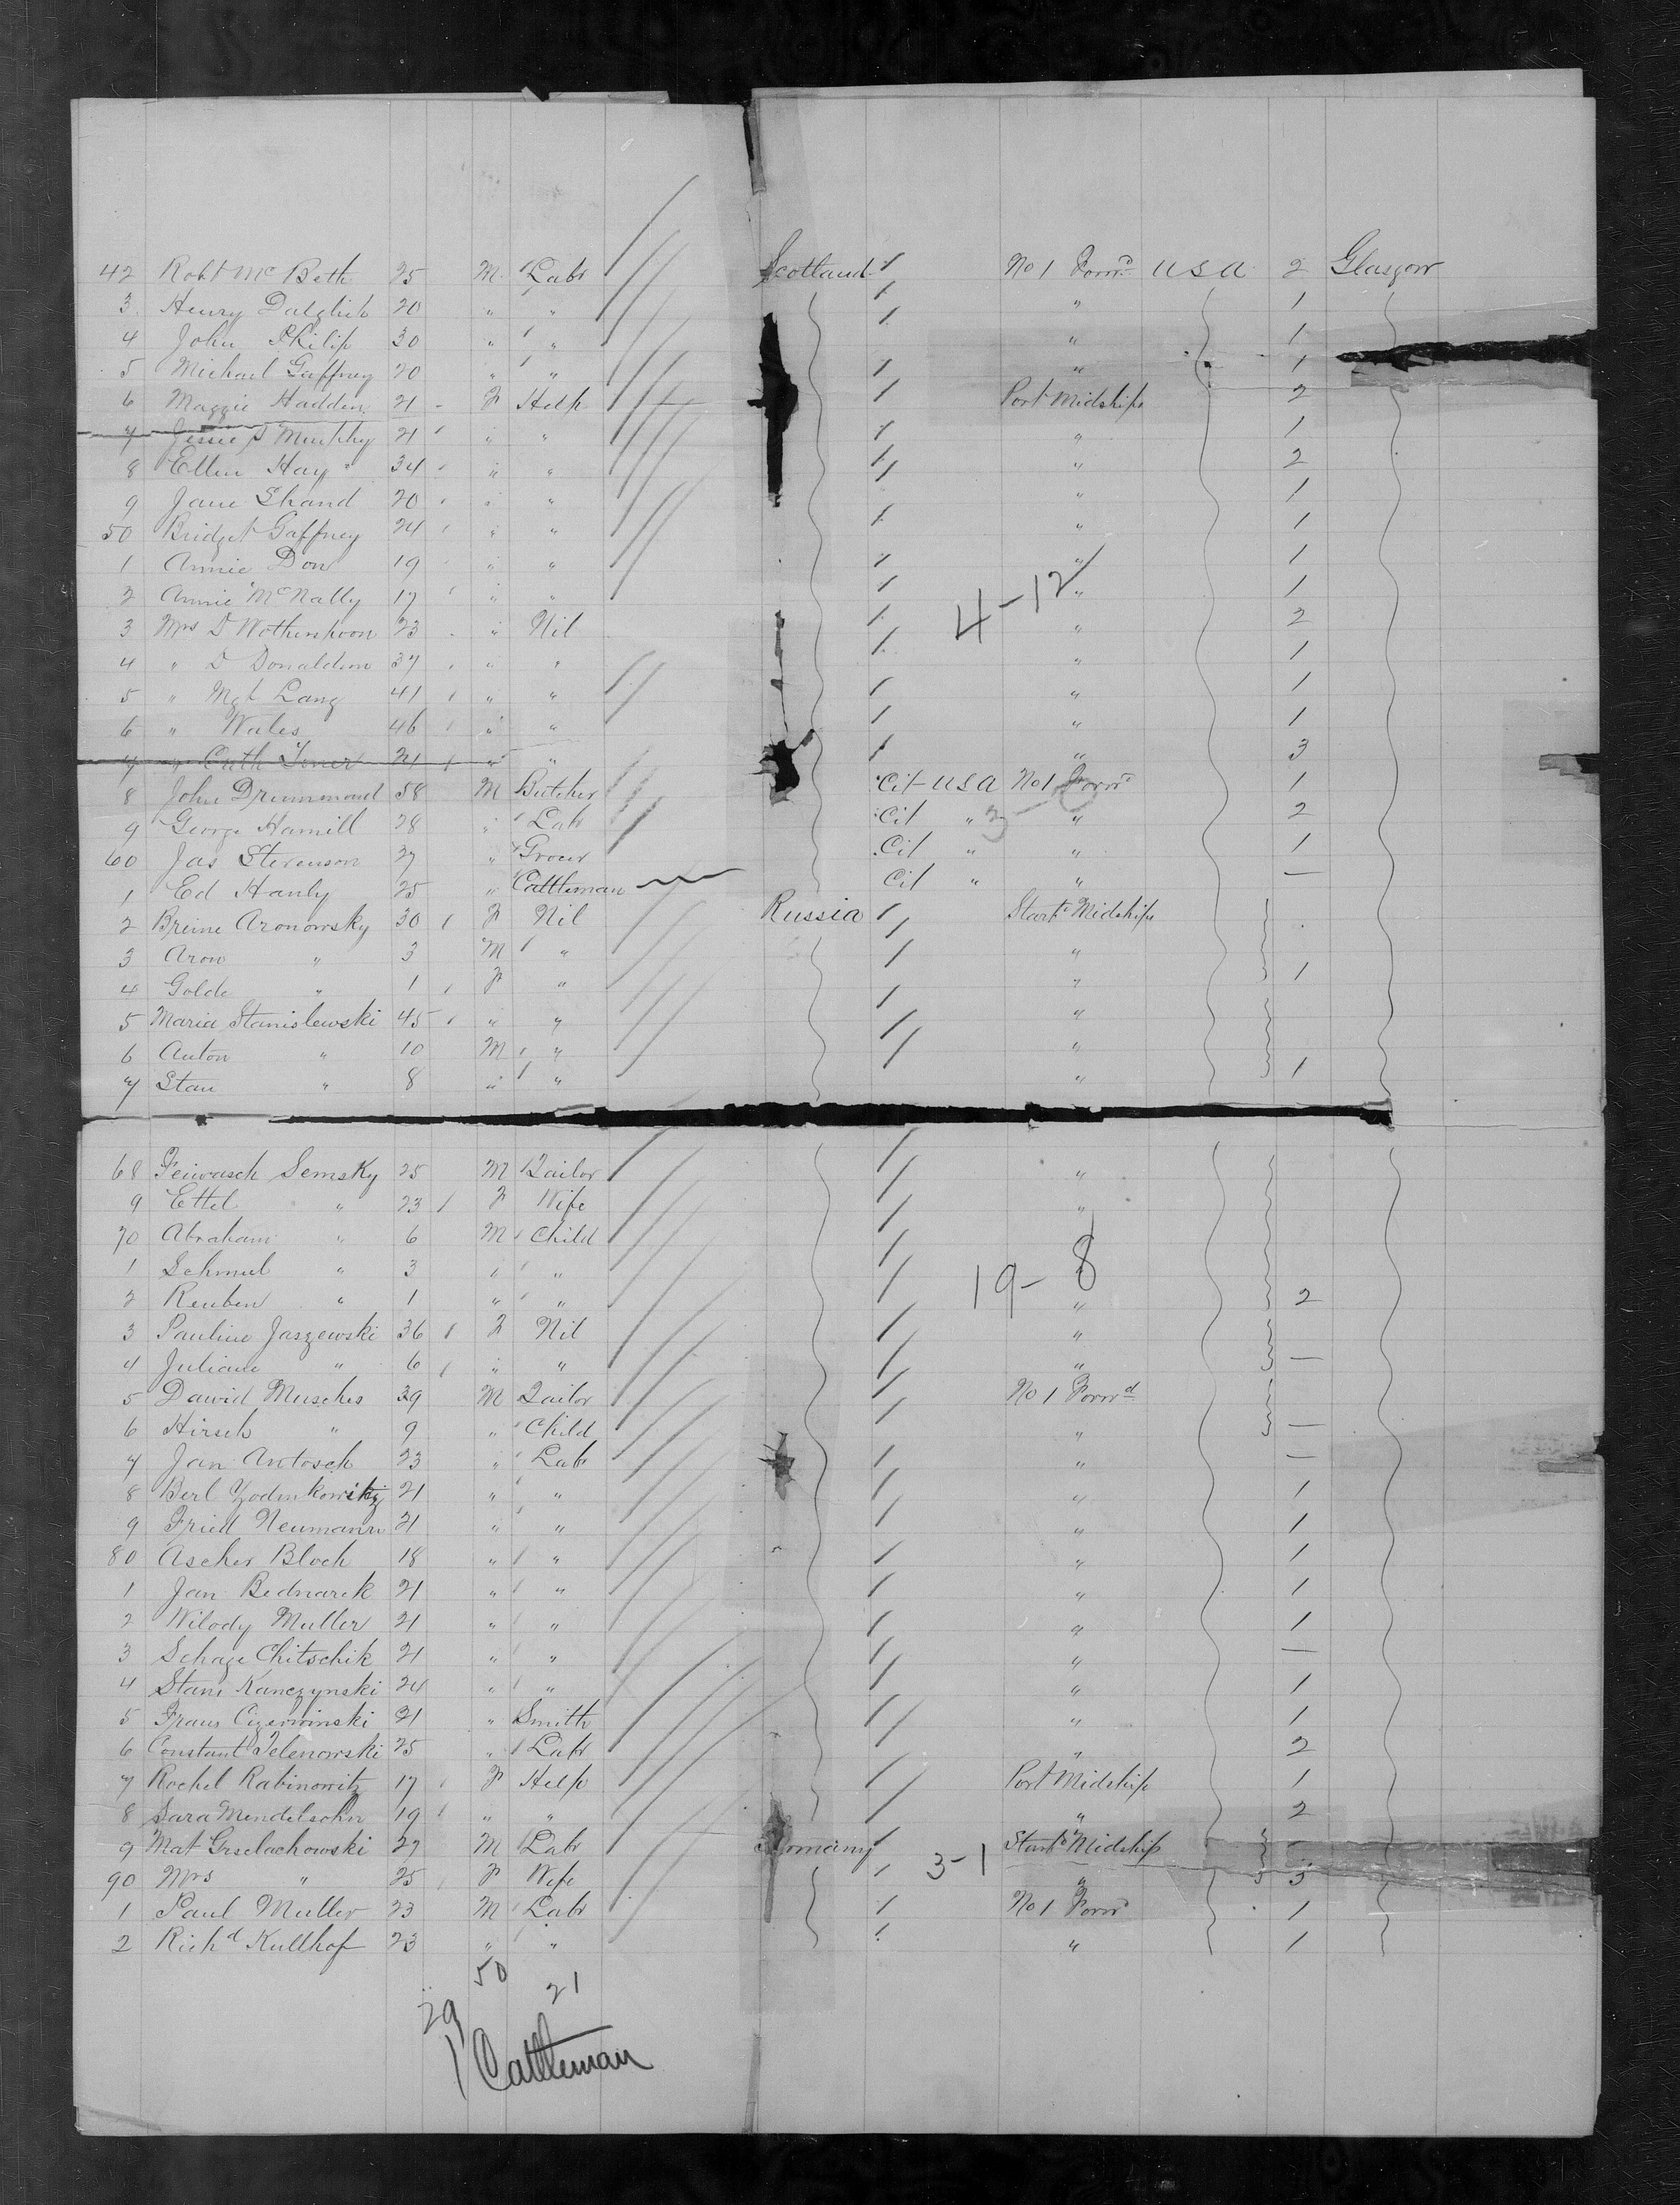 42 Robt Mc Beth 25 M Labr Scotland No 1 Forwd USA 2 Glasgow
3 Henry Dalglish 20 " " " 1
4 John Philip 30 " " " 1
5 Michael Gaffney 20 " " " 1
6 Maggie Hadden 21 F Help Port Midships 2
7 Jessie S Murphy 21 " " " 1
8 Ellen Hay 34 " " " 2
9 Jane Shand 20 " " " 1
50 Bridget Gaffney 24 " " " 1
1 Annie Don 19 " " " 1
2 Annie McNally 17 " " " 1
4-12
3 Mrs D Wotherspoon 23 " Nil " 2
4 " D Donaldson 37 " " " 1
5 " Mgt Lang 41 " " " 1
6 " Wales 46 " " " 1
7 " Cath 21 " " " 3
8 John Drummond 58 M Butcher Cit USA No 1 Forwd 1
9 George Hamill 28 " Labr Cit " " 2
60 Jas Stevenson 27 " Grocer Cit " " 1
1 Ed Hanly 25 " Cattleman Cit " " —
2 Breine Aronowsky 30 F Nil Russia Starb Midships
3 Aron " 3 M " "
4 Golde " 1 F " " 1
5 Maria Stanislewski 45 " " "
6 Anton " 10 M " "
7 Stan " 8 " " " 1
68 Feiwasch Semsky 25 M Tailor "
9 Ettel " 23 F Wife "
70 Abraham " 6 M Child
19-8
1 Schmul " 3 " "
2 Reuben " 1 " " " 2
3 Pauline Jaszewski 36 F Nil "
4 Juliane " 6 " " " —
5 Dawid Musches 39 M Tailor No 1 Forwd
6 Hirsch " 9 " Child " —
7 Jan Antosch 23 " Labr " —
8 Berl 21 " " " 1
9 Fried Neumann 21 " " " 1
80 Ascher Bloch 18 " " " 1
1 Jan Bednarek 21 " " " 1
2 Wilody Muller 21 " " " 1
3 Schage Chitschik 21 " " " —
4 Stans Kanczynski 24 " " " 1
5 Franz Czerwinski 21 " Smith " 1
6 Constant Zelenowski 25 " Labr " 2
7 Rochel Rabinowitz 17 F Help Port Midship 1
8 Sara Mendelsohn 19 " " " 2
9 Mat Grselachowski 27 M Labr Germany Starb Midship —
3-1
90 Mrs " 25 F Wife " 3
1 Paul Muller 23 M Labr No 1 Forwd 1
2 Richd Kullhof 23 " " " 1
50
21
29
1 Cattleman